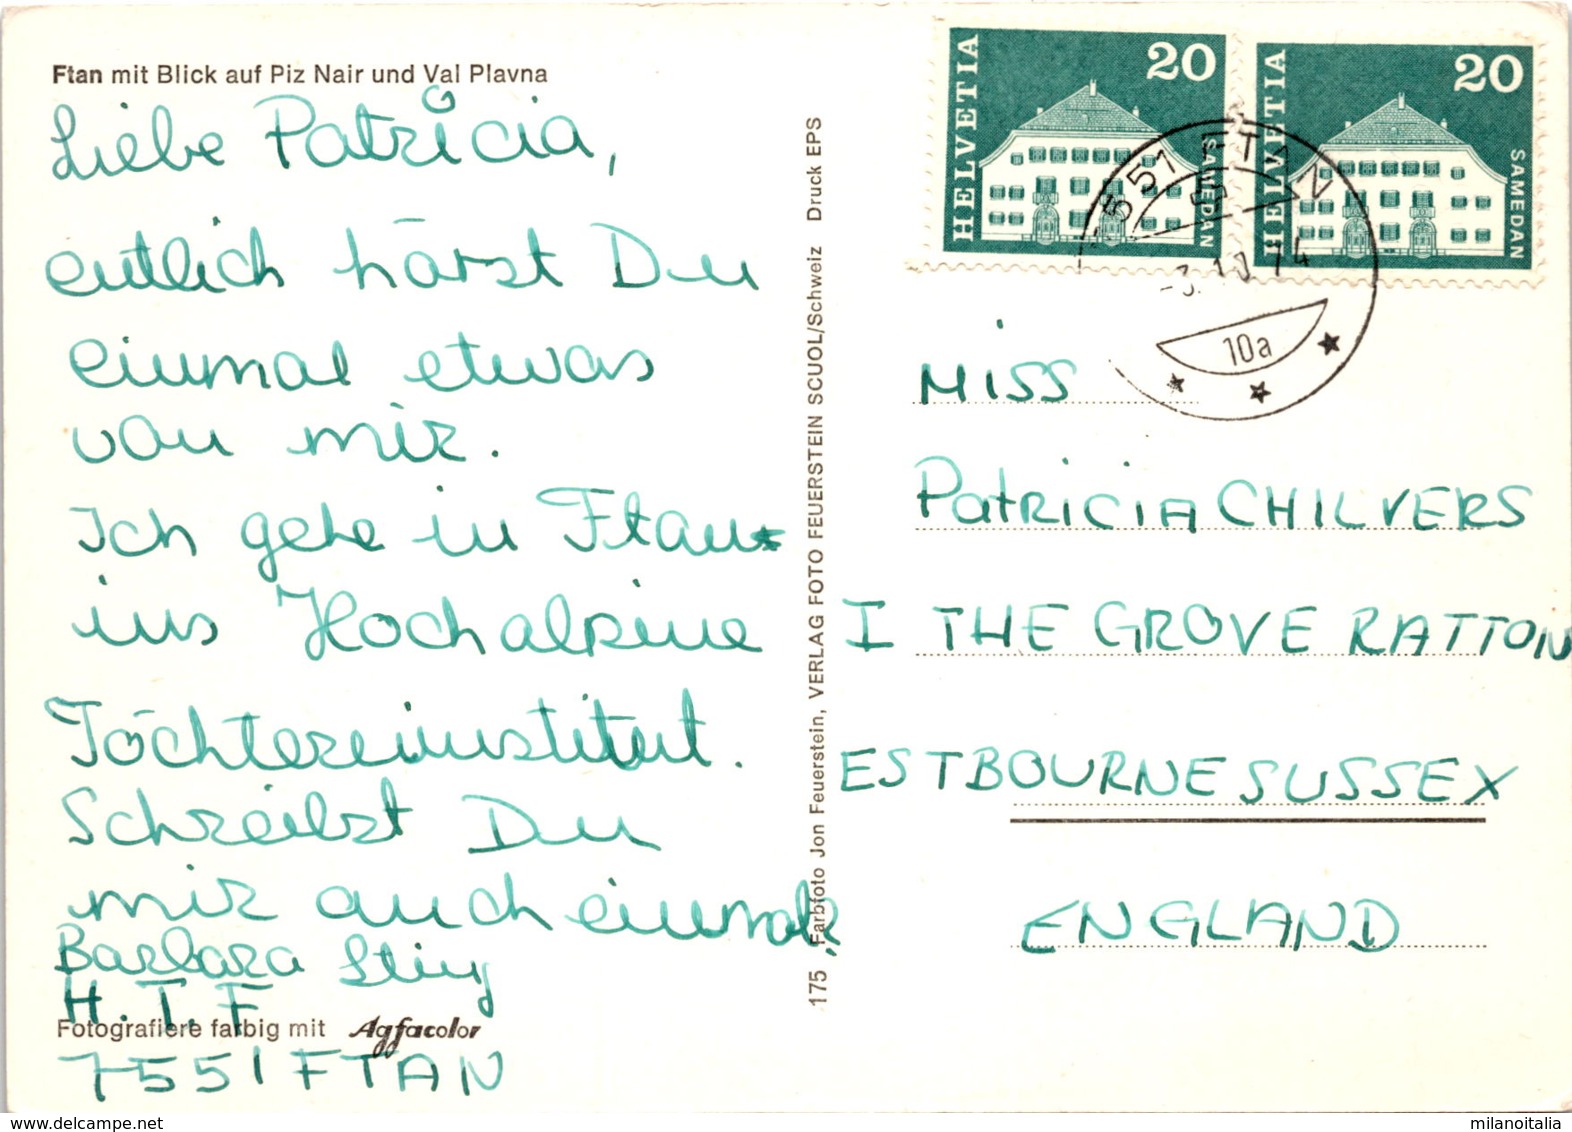 Ftan mit Blick auf Piz Nair und Val Plavna
Liebe Patricia,
entlich hörst Du
einmal etwas
von mir.
Ich gehe in Ftan
ins Hochalpine
Töchtereinstitut.
Schreibst Du
mir auch einmal?
Barbara
H.T.F
Fotografiere farbig mit Agfacolor
7551 FTAN
175 Farbfoto Jon Feuerstein, VERLAG FOTO FEUERSTEIN SCUOL/Schweiz Druck EPS
HELVETIA 20 SAMEDAN
HELVETIA 20 SAMEDAN
7551 FTAN
-3.10.74
10a
MISS
PatRICIA CHILVERS
I THE GROVE RATTON
ESTBOURNE SUSSEX
ENGLAND
milanoitalia